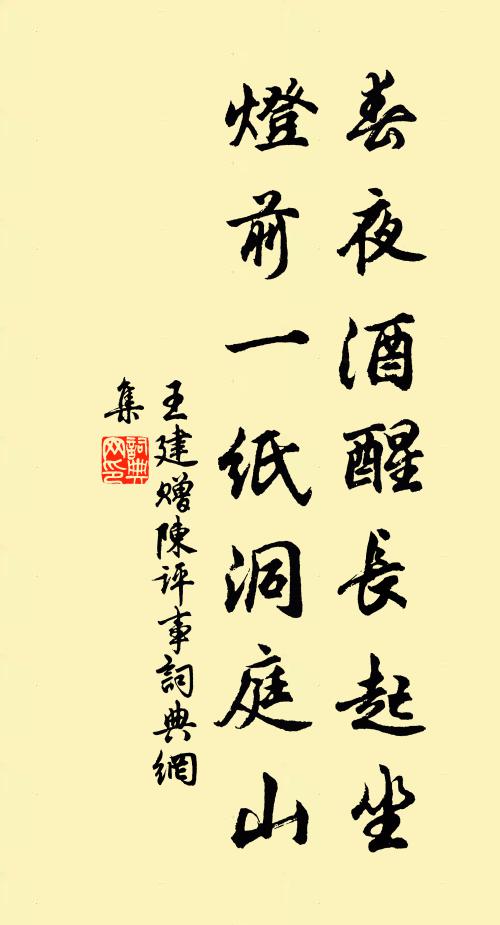 春夜酒醒長起坐
燈前一紙洞庭山
王建贈陳評事詞典網
集
詞典網印